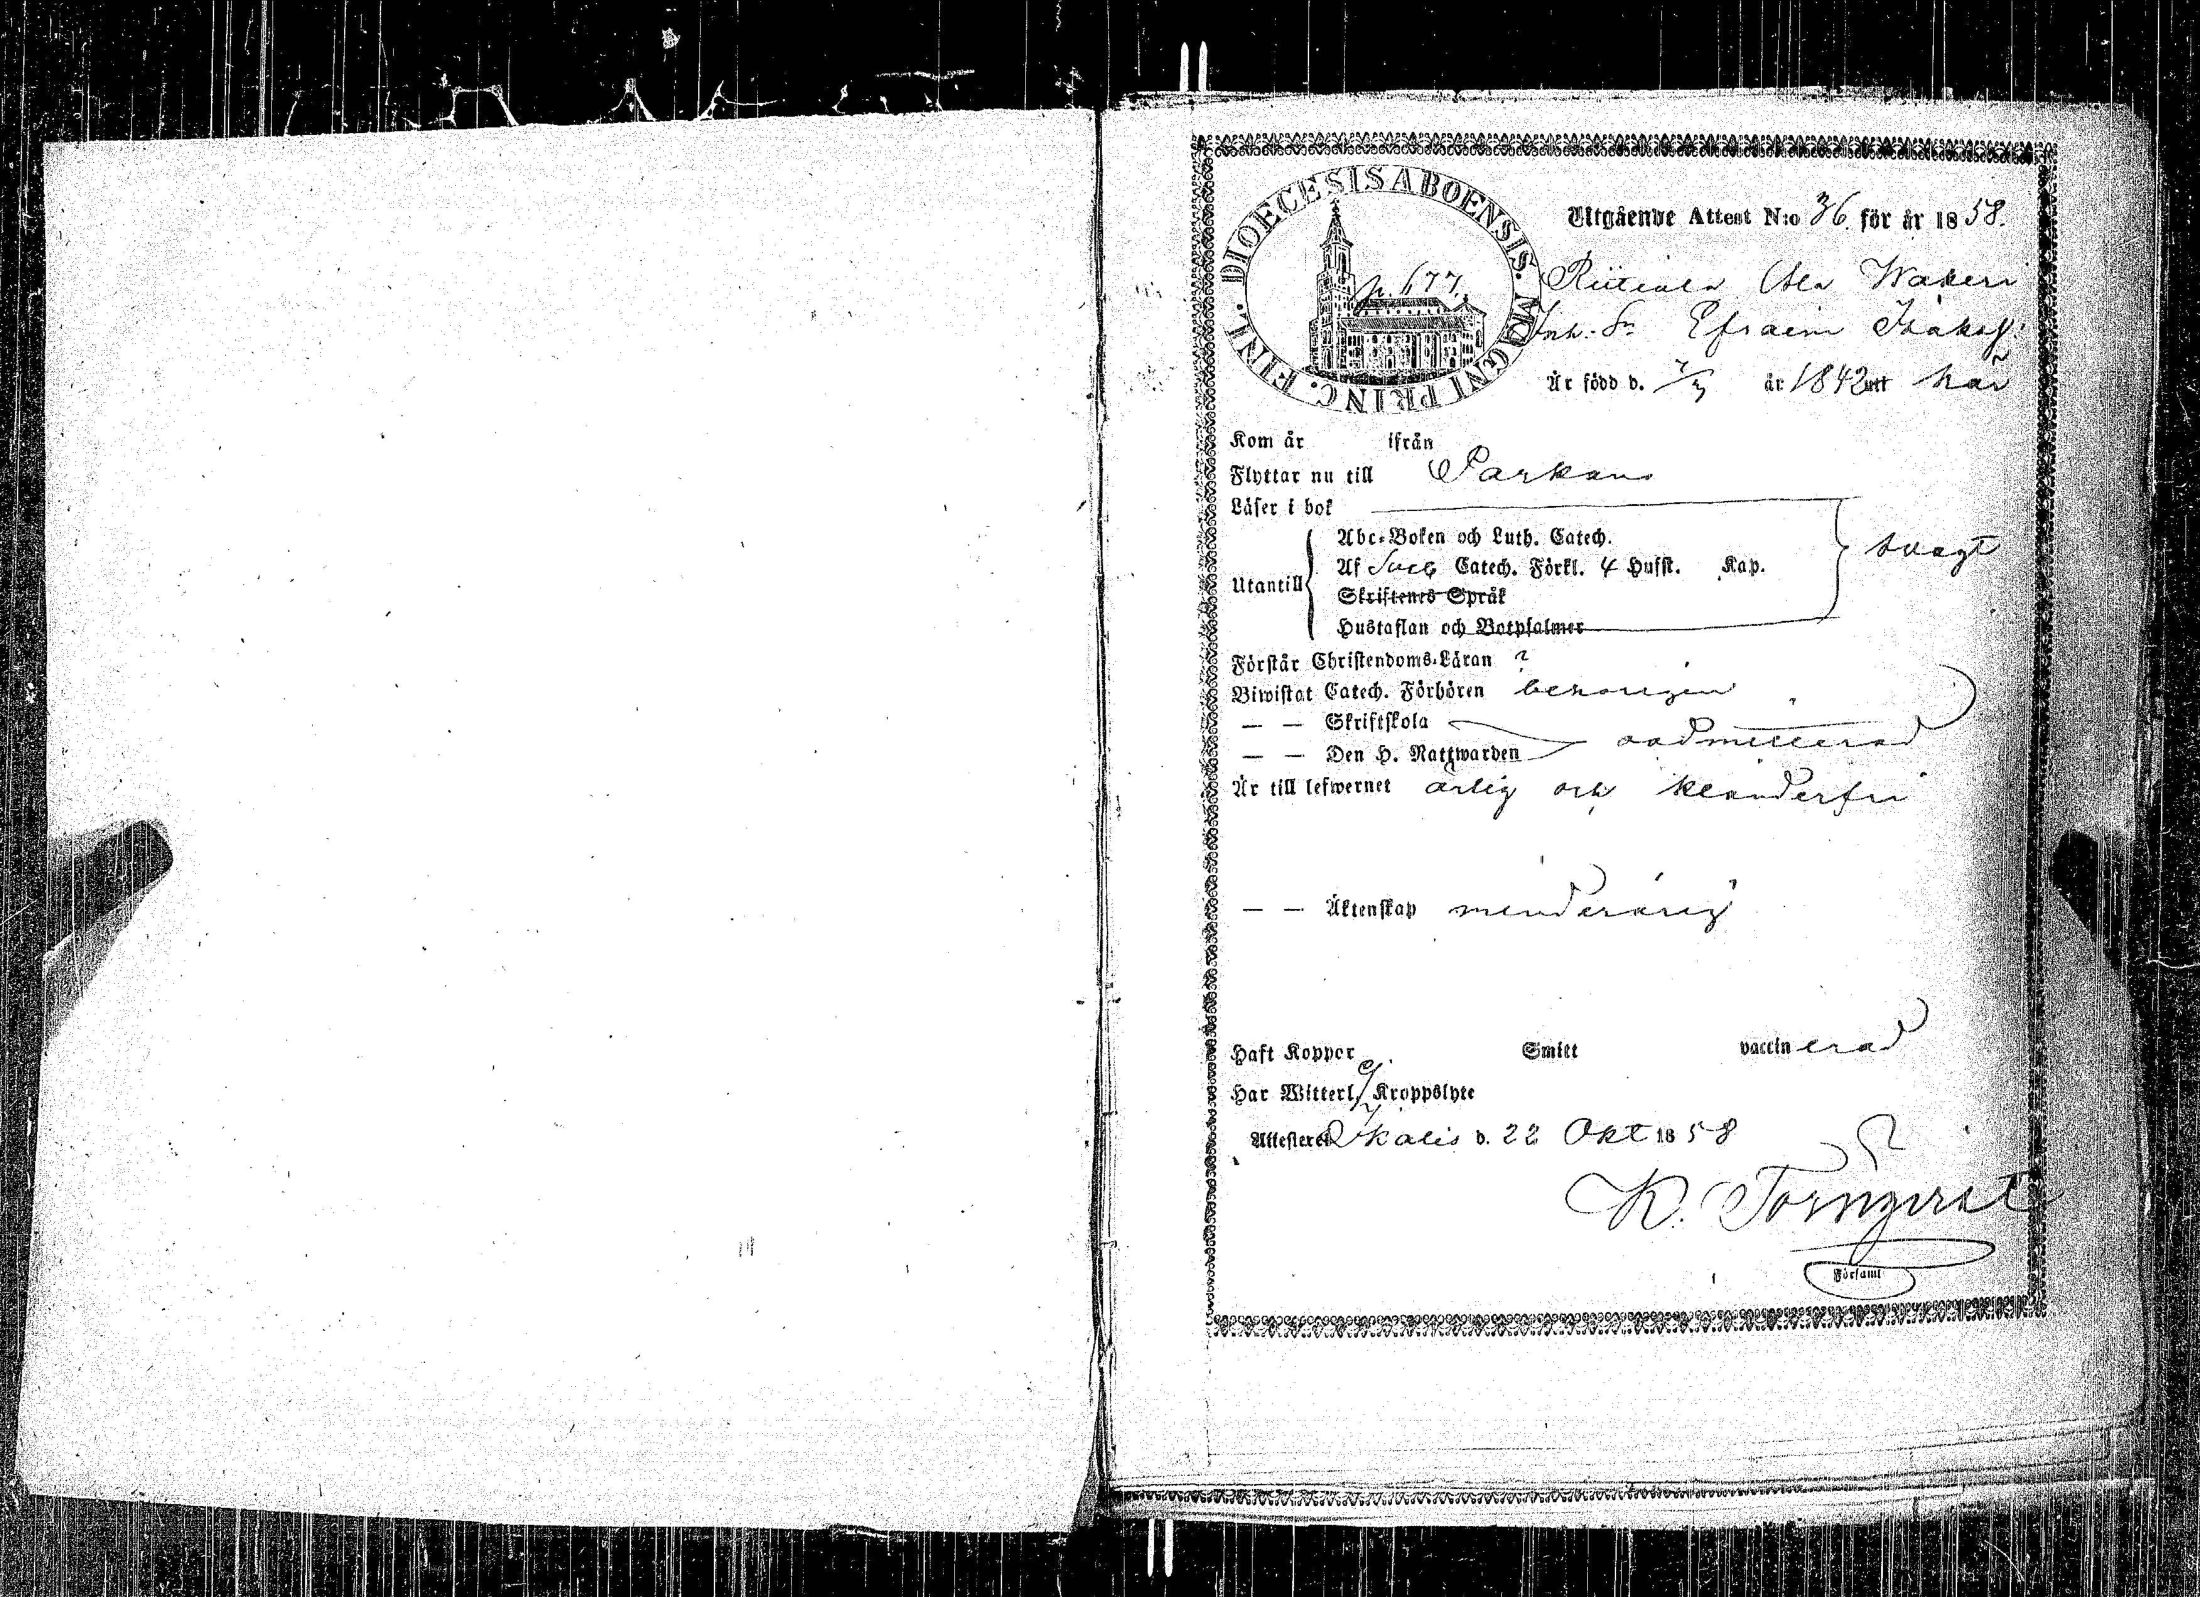 DIOECESIS ABOENSIS. MAGNI PRINC. FINL.
p. 677.
Utgående Attest N:o 36 för år 1858.
Inh. Sn Efraim Isaksf:
Är född d. 7/3 år 1842 utt här
Kom år ifrån
Flyttar nu till Parkano
Läser i bok
Abc-Boken och Luth. Catech.
Utantill Af Sveb Catech. Förkl. 4 Hufst. Kap. svagt
Skriftenes Språk
Hustaflan och Botpsalmer
Förstår Christendoms-Läran ?
Biwistat Catech. Förhören behörigen
— — Skriftskola
— — Den H. Nattwarden oadmitterad
Är till lefwernet ärlig och klanderfri
— — Äktenskap minderårig
Haft Koppor Smitt vaccinerad
Har Witterl. Kroppslyte
Attesterar Ikalis d. 22 Okt 1858
K. Törnqvist
Församl